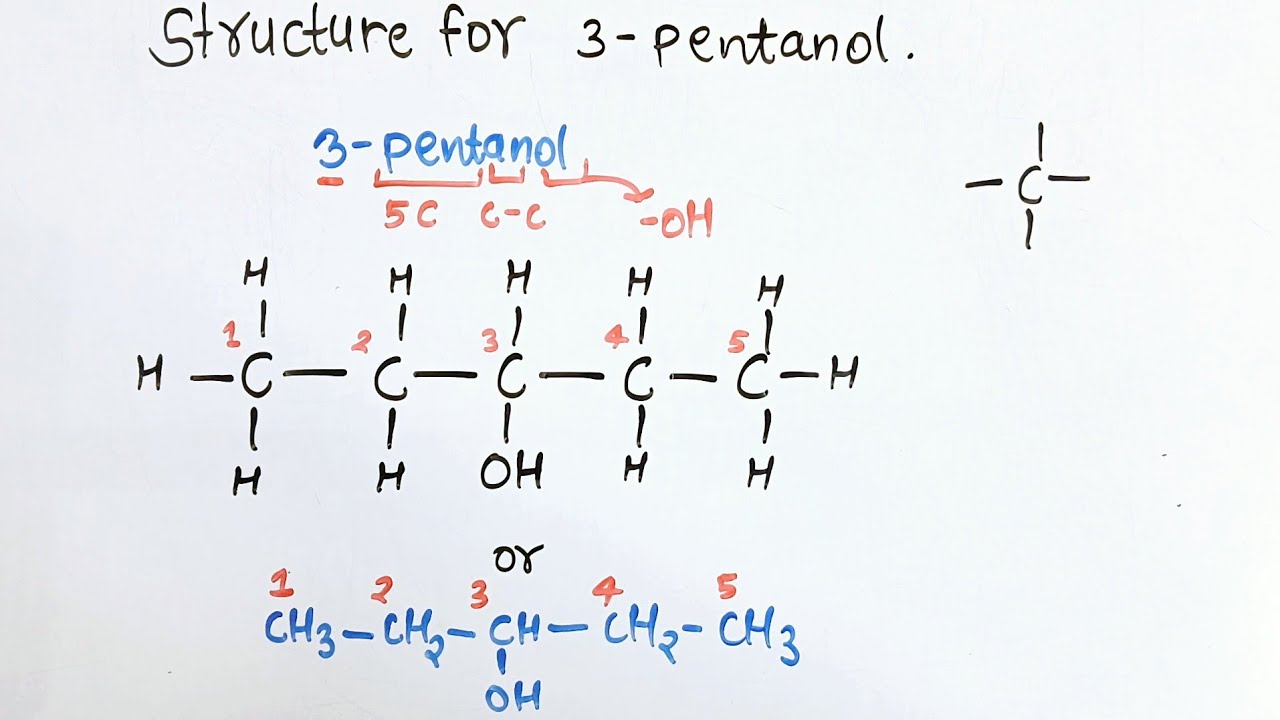 Structure for 3-pentanol.
3-pentanol
5C C-C -OH
C
H H H H H
1 2 3 4 5
H - C - C - C - C - C - H
H H OH H H
or
1 2 3 4 5
CH3 - CH2 - CH - CH2 - CH3
OH